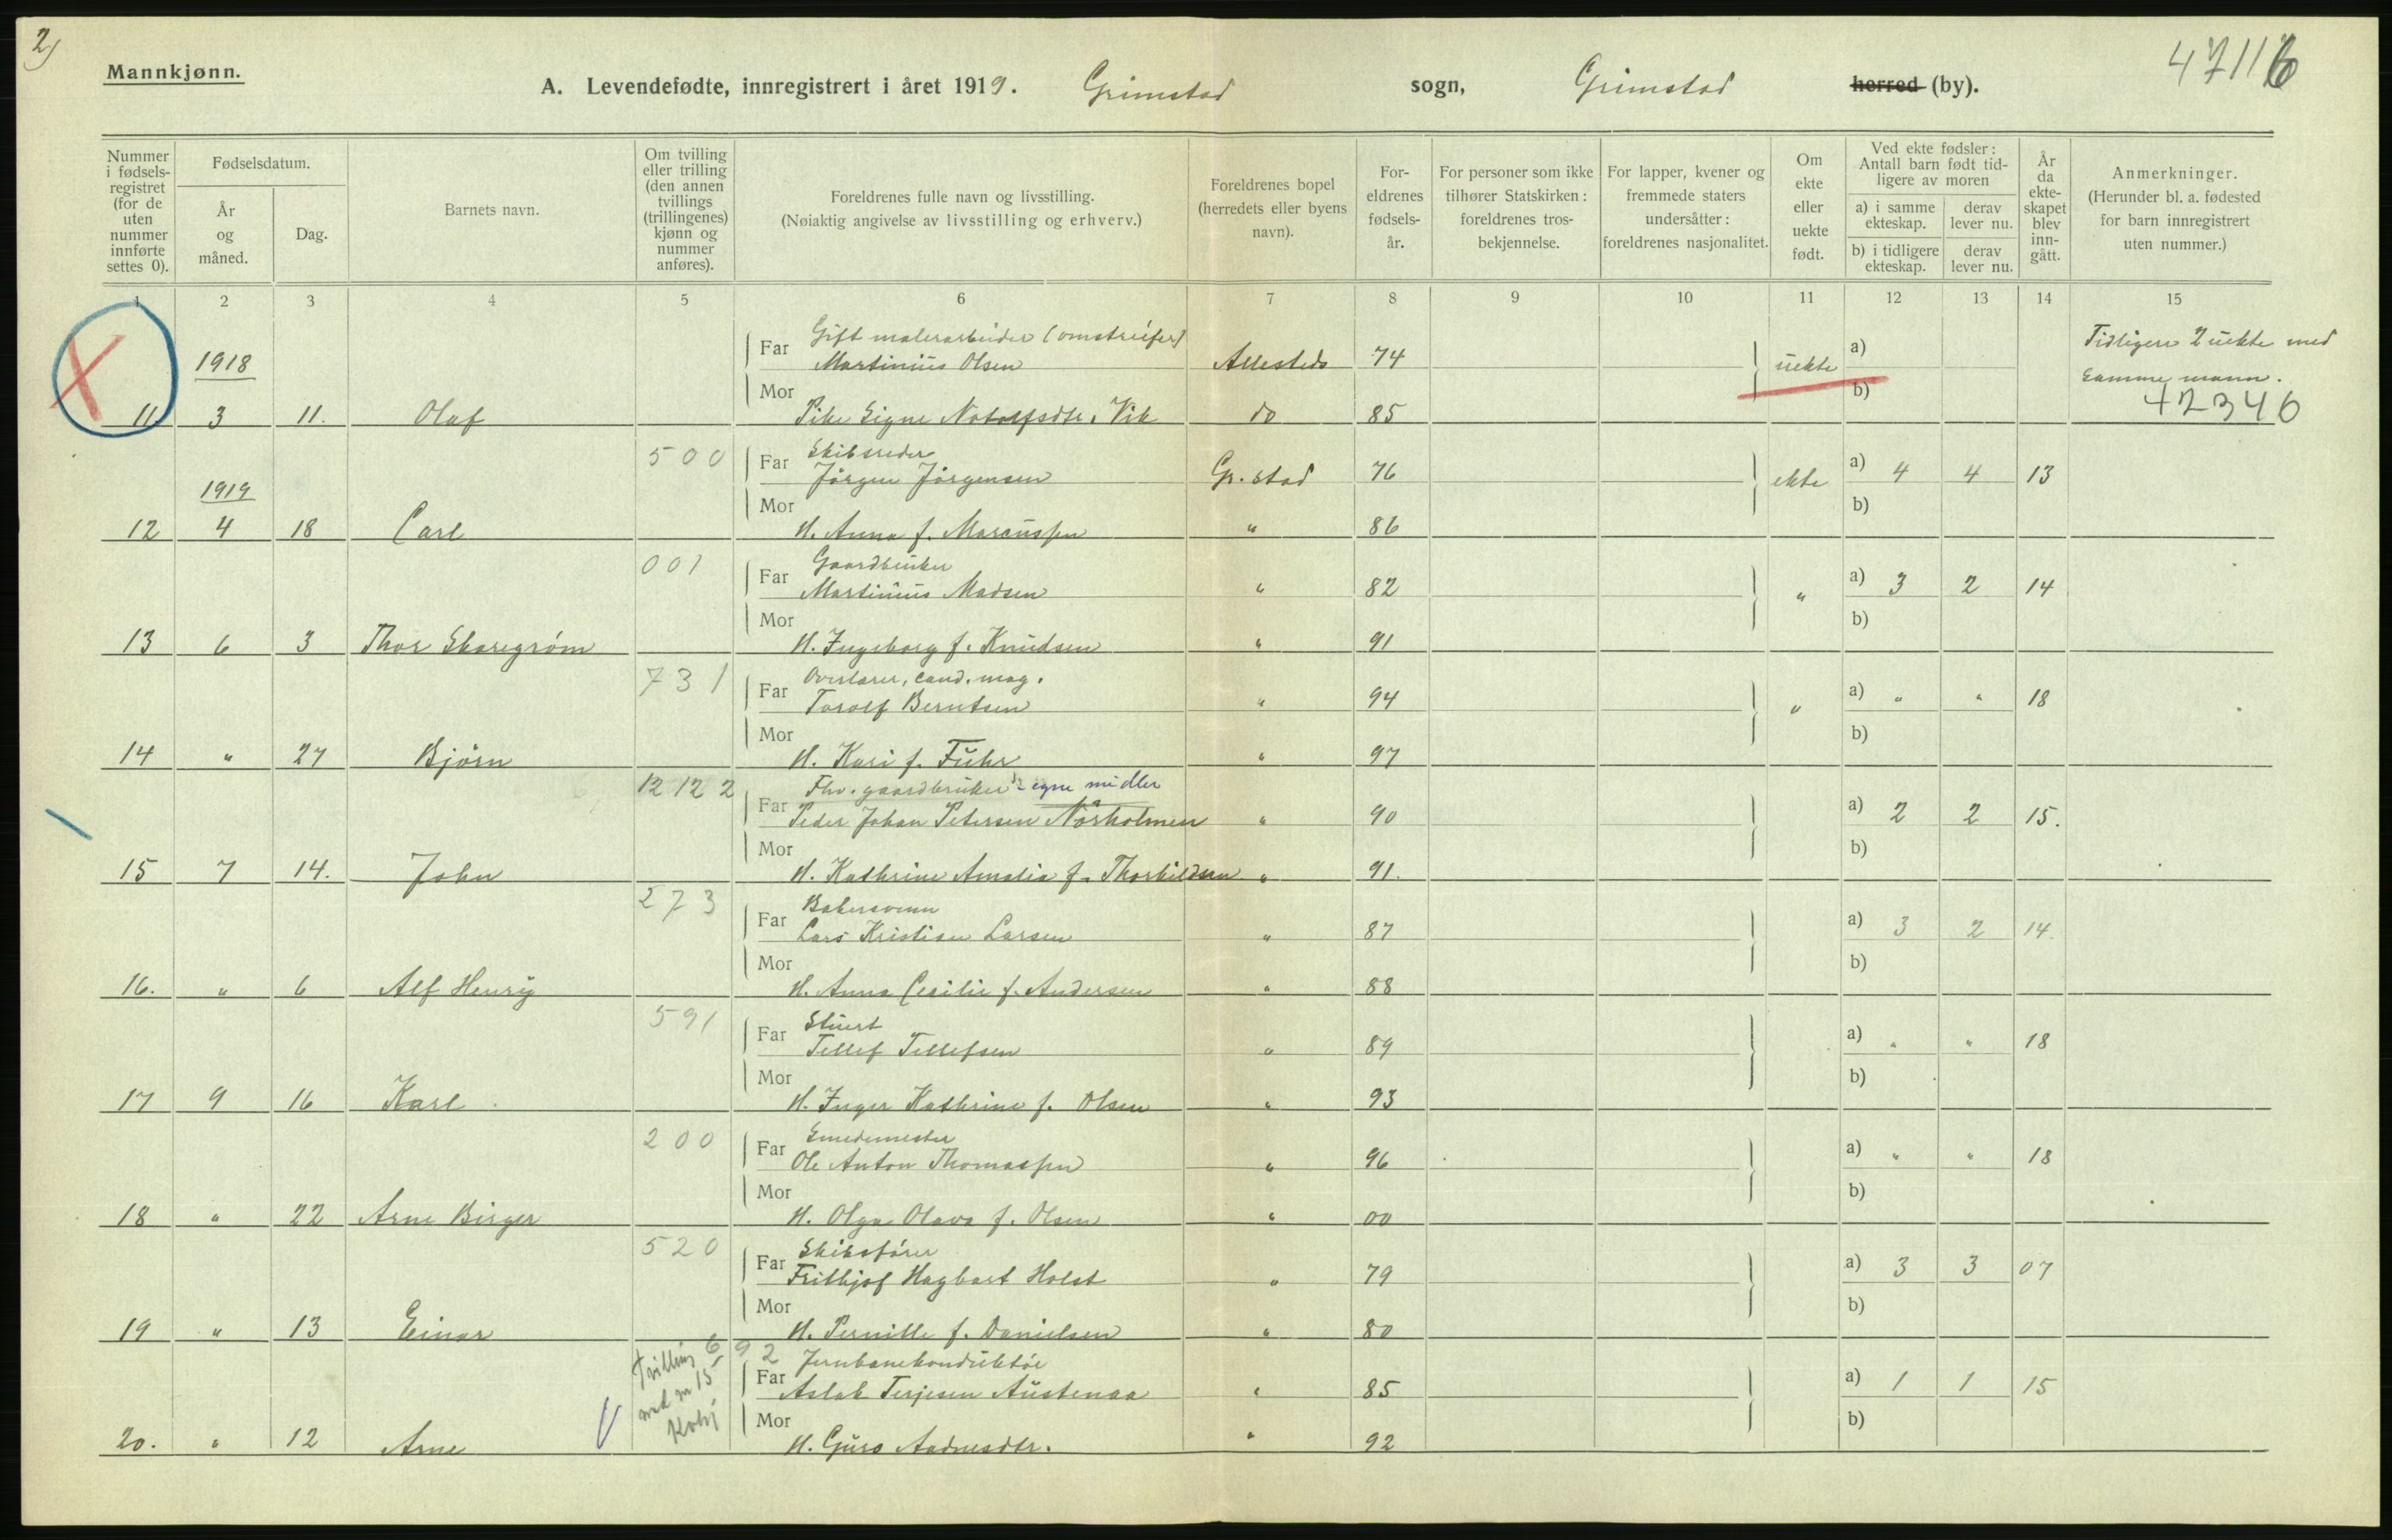 2)
Mannkjønn.
A. Levendefødte, innregistrert i året 1919. Grimstad sogn, Grimstad herred (by).
47116
Nummer i fødsels-registret (for de uten nummer innførte settes 0).
Fødselsdatum.
År og måned.
Dag.
Barnets navn.
Om tvilling eller trilling (den annen tvillings (trillingenes) kjønn og nummer anføres).
Foreldrenes fulle navn og livsstilling.
(Nøiaktig angivelse av livsstilling og erhverv.)
Foreldrenes bopel (herredets eller byens navn).
For-eldrenes fødsels-år.
For personer som ikke tilhører Statskirken: foreldrenes tros-bekjennelse.
For lapper, kvener og fremmede staters undersåtter: foreldrenes nasjonalitet.
Om ekte eller uekte født.
Ved ekte fødsler: Antall barn født tid-ligere av moren
a) i samme ekteskap.
derav lever nu.
b) i tidligere ekteskap.
derav lever nu.
År da ekte-skapet blev inn-gått.
Anmerkninger.
(Herunder bl. a. fødested for barn innregistrert uten nummer.)
1 2 3 4 5 6 7 8 9 10 11 12 13 14 15
Gift malerarbeider (omstreifer)
1918 Far Martinius Olsen Allesteds 74 uekte a) Tidligere 2 uekte med
b) samme mann.
11 3 11. Olaf Mor Pike Signe Notolfsdtr. Vik do 85 42346
500 Skibsreder
1919 Far Jörgen Jörgensen Gr.stad 76 ekte a) 4 4 13
b)
12 4 18 Carl Mor H. Anna f. Marcussen " 86
001 Gaardbruker
Far Martinius Madsen " 82 " a) 3 2 14
b)
13 6 3 Thor Skaregrøm Mor H. Ingeborg f. Knudsen " 91
731 Overlærer, cand. mag.
Far Torolf Berntsen " 94 " a) " " 18
b)
14 " 27 Björn Mor H. Kari f. Führ " 97
12 12 2 Fhv. gaardbruker - egne midler
Far Peder Johan Petersen Nörholmen " 90 a) 2 2 15.
b)
15 7 14. John Mor H. Kathrine Amalia f. Thorkildsen " 91.
273 Bakersvenn
Far Lars Kristian Larsen " 87 a) 3 2 14.
b)
16. " 6 Alf Henrij Mor H. Anna Cecilie f. Andersen " 88
591 Stuert
Far Tellef Tellefsen " 89 a) " " 18
b)
17 9 16 Karl Mor H. Inger Kathrine f. Olsen " 93
200 Smedemester
Far Ole Anton Thomassen " 96 a) " " 18
b)
18 " 22 Arne Birger Mor H. Olga Olava f. Olsen " 00
520 Skibsfører
Far Frithjof Hagbart Holst " 79 a) 3 3 07
b)
19 " 13 Einar Mor H. Pernille f. Danielsen " 80
692 Jernbanekonduktør
Tvilling med nr 15 Kvkj Far Aslak Terjesen Austenaa " 85 a) 1 1 15
b)
20. " 12 Arne Mor H. Guro Aadnesdtr. " 92